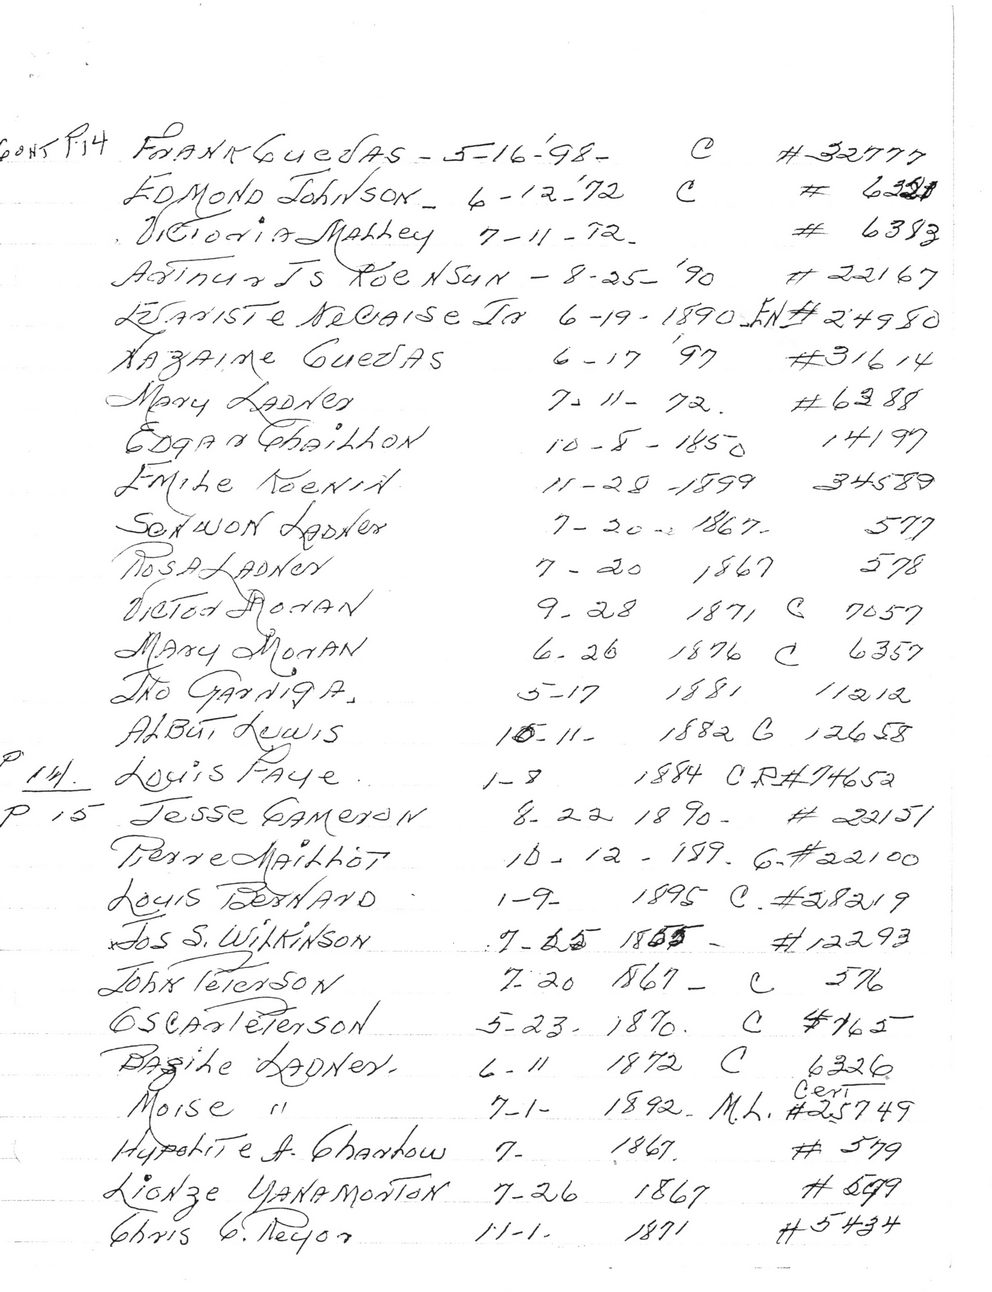 CONT P.14 FRANK CUEVAS - 5-16-'98- C #32777
EDMOND JOHNSON - 6-12-'72 C # 6321
VICTORIA MALLEY 7-11-72. # 6383
ARTHUR JS KOENSUN - 8-25-'90 # 22167
EVARISTE NECAISE JR 6-19-1890 EN# 24980
NAZAIRE CUEVAS 6-17 '97 #31614
MARY LADNER 7-11-72. #6388
EDGAR CHAILLON 10-8-1850 14197
EMILE KOENIN 11-28-1899 34589
SENWON LADNER 7-20-1867- 577
ROSA LADNER 7-20 1867 578
VICTOR MORAN 9-28 1871 C 7057
MARY MORAN 6-26 1876 C 6357
JNO GARRIGA. 5-17 1881 11212
ALBUT LEWIS 10-11- 1882 C 12658
P 14. LOUIS FAYE. 1-8 1884 C R#74652
P 15 JESSE CAMERON 8-22 1890- # 22151
PIERRE MAILLIOT 10-12-189. C-#22100
LOUIS BERNARD 1-9- 1895 C. #28219
JOS S. WILKINSON 7- 1855 - #12293
JOHN PETERSON 7-20 1867- C 576
OSCAR PETERSON 5-23- 1870. C #765
BAZILE LADNER. 6-11 1872 C 6326
MOISE " 7-1- 1892- M.L. CERT #25749
HYPOLITE A. CHARLOW 7- 1867. # 579
LIONZE YANAMONTON 7-26 1867 # 599
CHRIS C. KEYOR 11-1. 1871 #5434